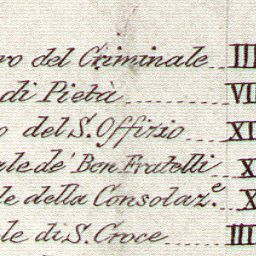 ro del Criminale III
di Pietà VII
o del S. Offizio XI
ale de' Ben Fratelli X
le della Consolaz.e X
le di S. Croce IIII